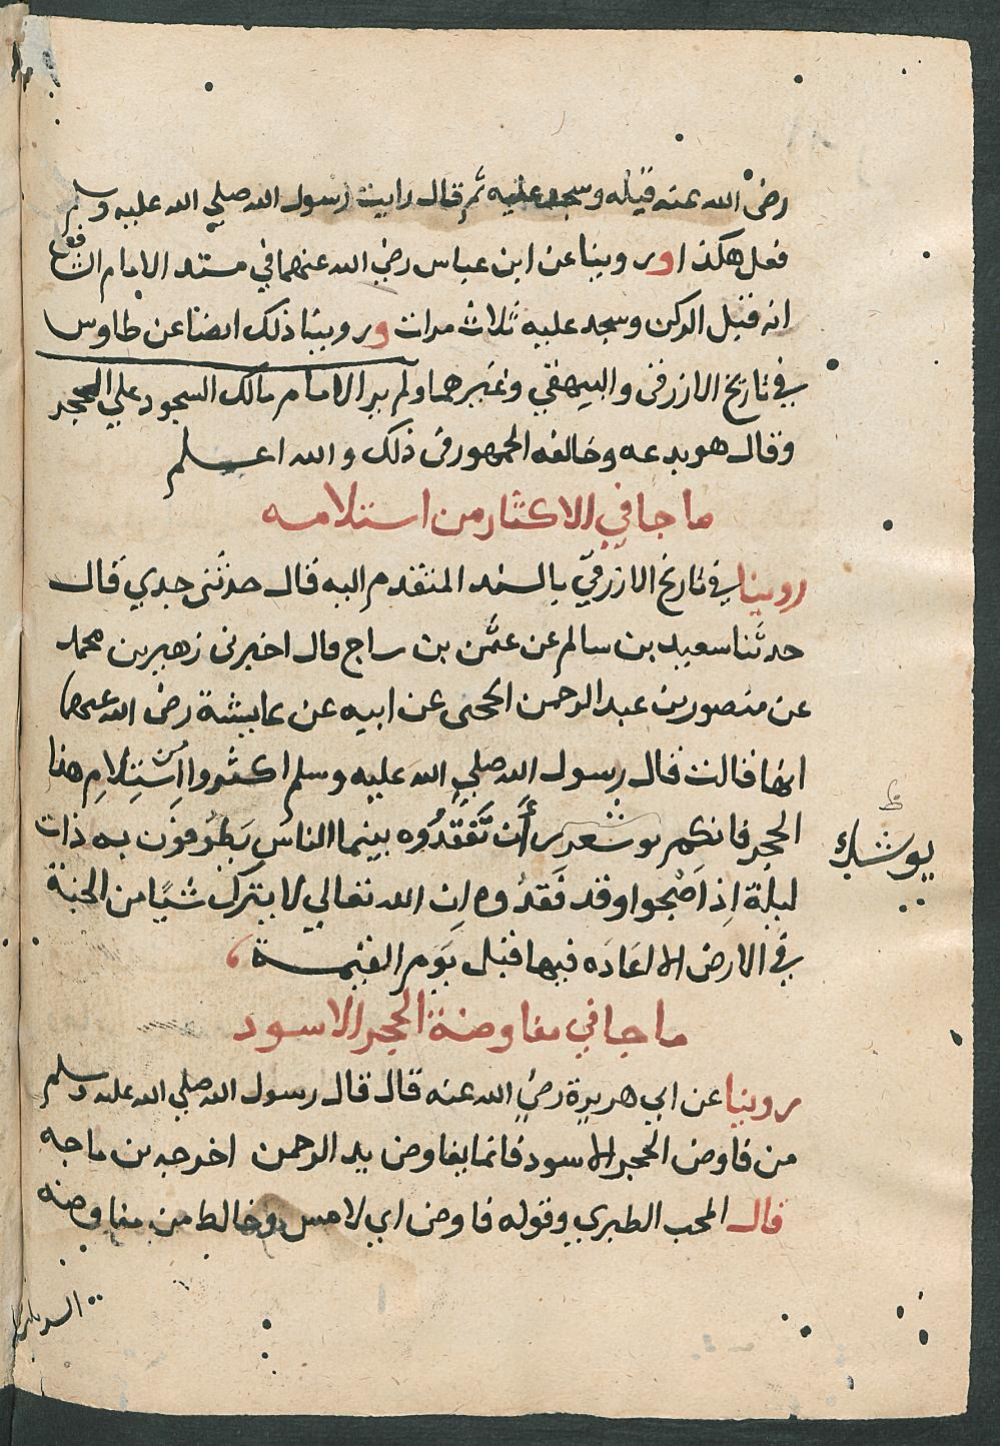 رضى الله عنه قبله وسجد عليه ثم قال رايت رسول الله صلي الله عليه وسلم
فعل هكذا وروينا عن ابن عباس رضي الله عنهما في مسند الامام الشافعي
انه قبل الركن وسجد عليه ثلاث مرات وروينا ذلك ايضا عن طاوس
في تاريخ الازرقى والبيهقي وغيرهما ولم ير الامام مالك السجود علي الحجر
وقال هو بدعه وخالفه الجمهور فى ذلك والله اعلم
ما جا في الاكثار من استلامه
روينا في تاريخ الازرقي بالسند المتقدم اليه قال حدثنى جدي قال
حدثنا سعيد بن سالم عن عثمن بن ساج قال اخبرنى زهير بن محمد
عن منصور بن عبد الرحمن الحجى عن ابيه عن عايشة رضى الله عنها
انها قالت قال رسول الله صلي الله عليه وسلم اكثروا من اسْتِلامِ هذا
الحجر فانكم أَن تَفْقِدُوه بينما الناسُ يَطُوفُون به ذات
ليلة اِذ اَصْبحوا وقد فَقَدُوه ان الله تعالي لا يترك شيًا من الجنة
في الارض الا اعَادَه فيها قبل يَوم القيمة
ما جا في مفاوضة الحجر الاسود
روينا عن ابي هريرة رضي الله عنه قال قال رسول الله صلي الله عليه وسلم
من فاوض الحجر الاسود فانما يفاوض يد الرحمن اخرجه بن ماجه
قال المحب الطبري وقوله فاوض اي لامس وخالط من مفاوضه
ظ
يوشك